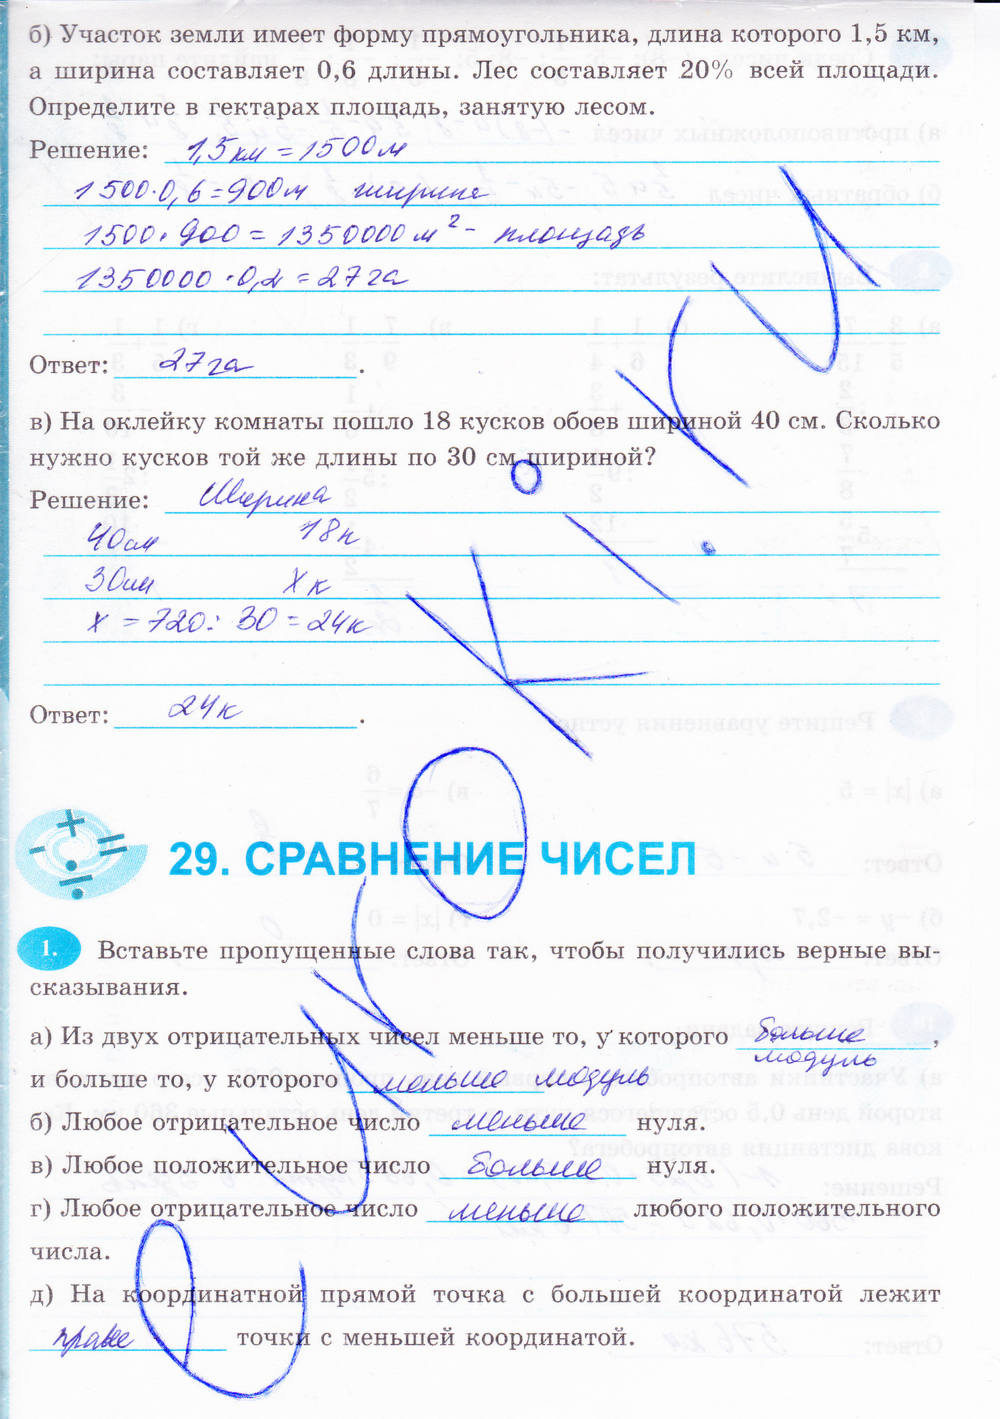 б) Участок земли имеет форму прямоугольника, длина которого 1,5 км,
а ширина составляет 0,6 длины. Лес составляет 20% всей площади.
Определите в гектарах площадь, занятую лесом.
Решение: 1,5 км = 1500 м
1500·0,6=900м ширина
1500·900 = 1350000 м² - площадь
1350000·0,2=27га
Ответ: 27га.
в) На оклейку комнаты пошло 18 кусков обоев шириной 40 см. Сколько
нужно кусков той же длины по 30 см шириной?
Решение: Ширина
40см 18к
30см х к
х = 720: 30 = 24к
Ответ: 24к.
29. СРАВНЕНИЕ ЧИСЕЛ
1. Вставьте пропущенные слова так, чтобы получились верные вы-
сказывания.
а) Из двух отрицательных чисел меньше то, у которого больше модуль,
и больше то, у которого меньше модуль
б) Любое отрицательное число меньше нуля.
в) Любое положительное число больше нуля.
г) Любое отрицательное число меньше любого положительного
числа.
д) На координатной прямой точка с большей координатой лежит
правее точки с меньшей координатой.
eurokI.ru